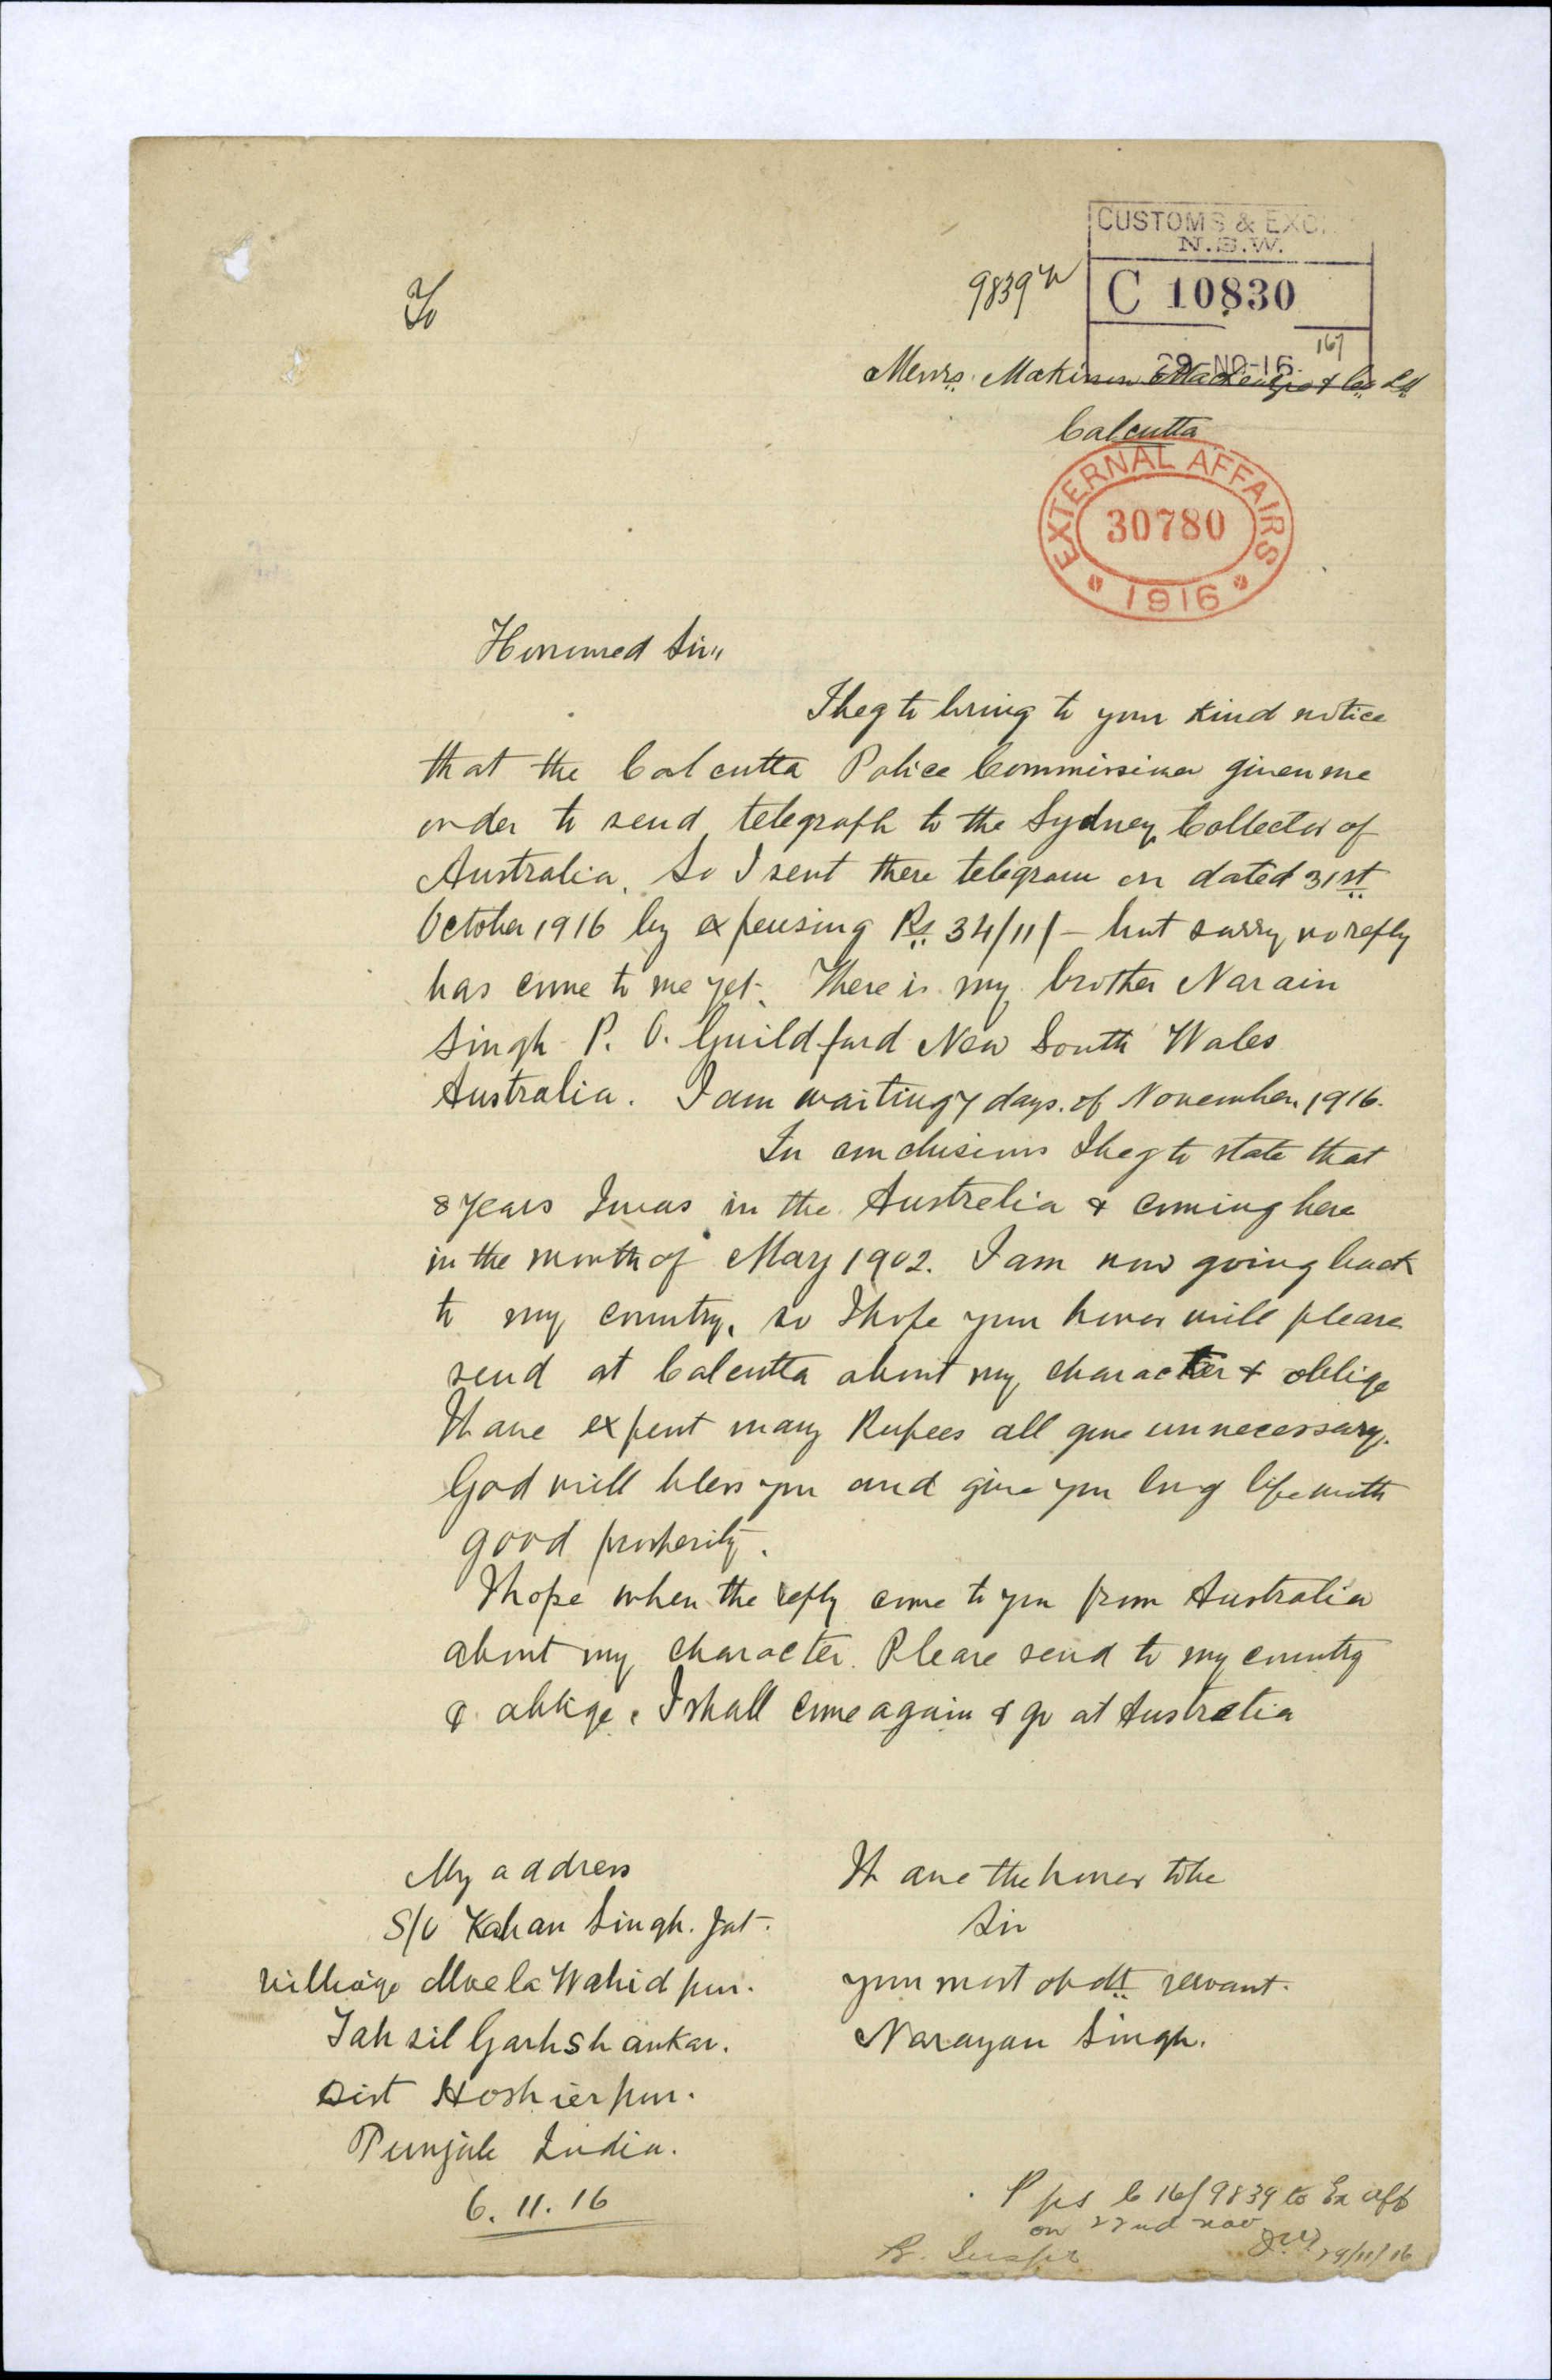 CUSTOMS & EXC.
N.S.W.
9839
C 10830
To
167
29-NO-16
Messrs. Makinon Mackenzie & Co Ld
Calcutta
EXTERNAL AFFAIRS
30780
1916
Honoured Sir,,
I beg to bring to your kind notice
that the Calcutta Police Commissioner given me
order to send telegraph to the Sydney Collector of
Australia. So I sent there telegram on dated 31st
October 1916 by expensing Rs 34/11/- but sorry no reply
has come to me yet. There is my brother Narain
Singh P. O. Guildford New South Wales
Australia. I am waiting 7 days of November 1916.
In conclusions I beg to state that
8 years I was in the Australia & coming here
in the month of May 1902. I am now going back
to my country, so I hope your honor will please
send at Calcutta about my character & oblige
I have expent many Rupees all gone unnecessary.
God will bless you and give you long life with
good prosperity.
I hope when the reply come to you from Australia
about my character. Please send to my country
& oblige. I shall come again & go at Australia
My address
S/O Kahan Singh. Jat.
village Moela Wahidpur.
Tahsil Garhshankar.
Dist Hoshierpur.
Punjab India.
6. 11. 16
I have the honor to be
Sir
your most obdt servant.
Narayan Singh.
Pps C 16/9839 to Ex Aff
on 22nd Nov
29/11/16
B. Inspr